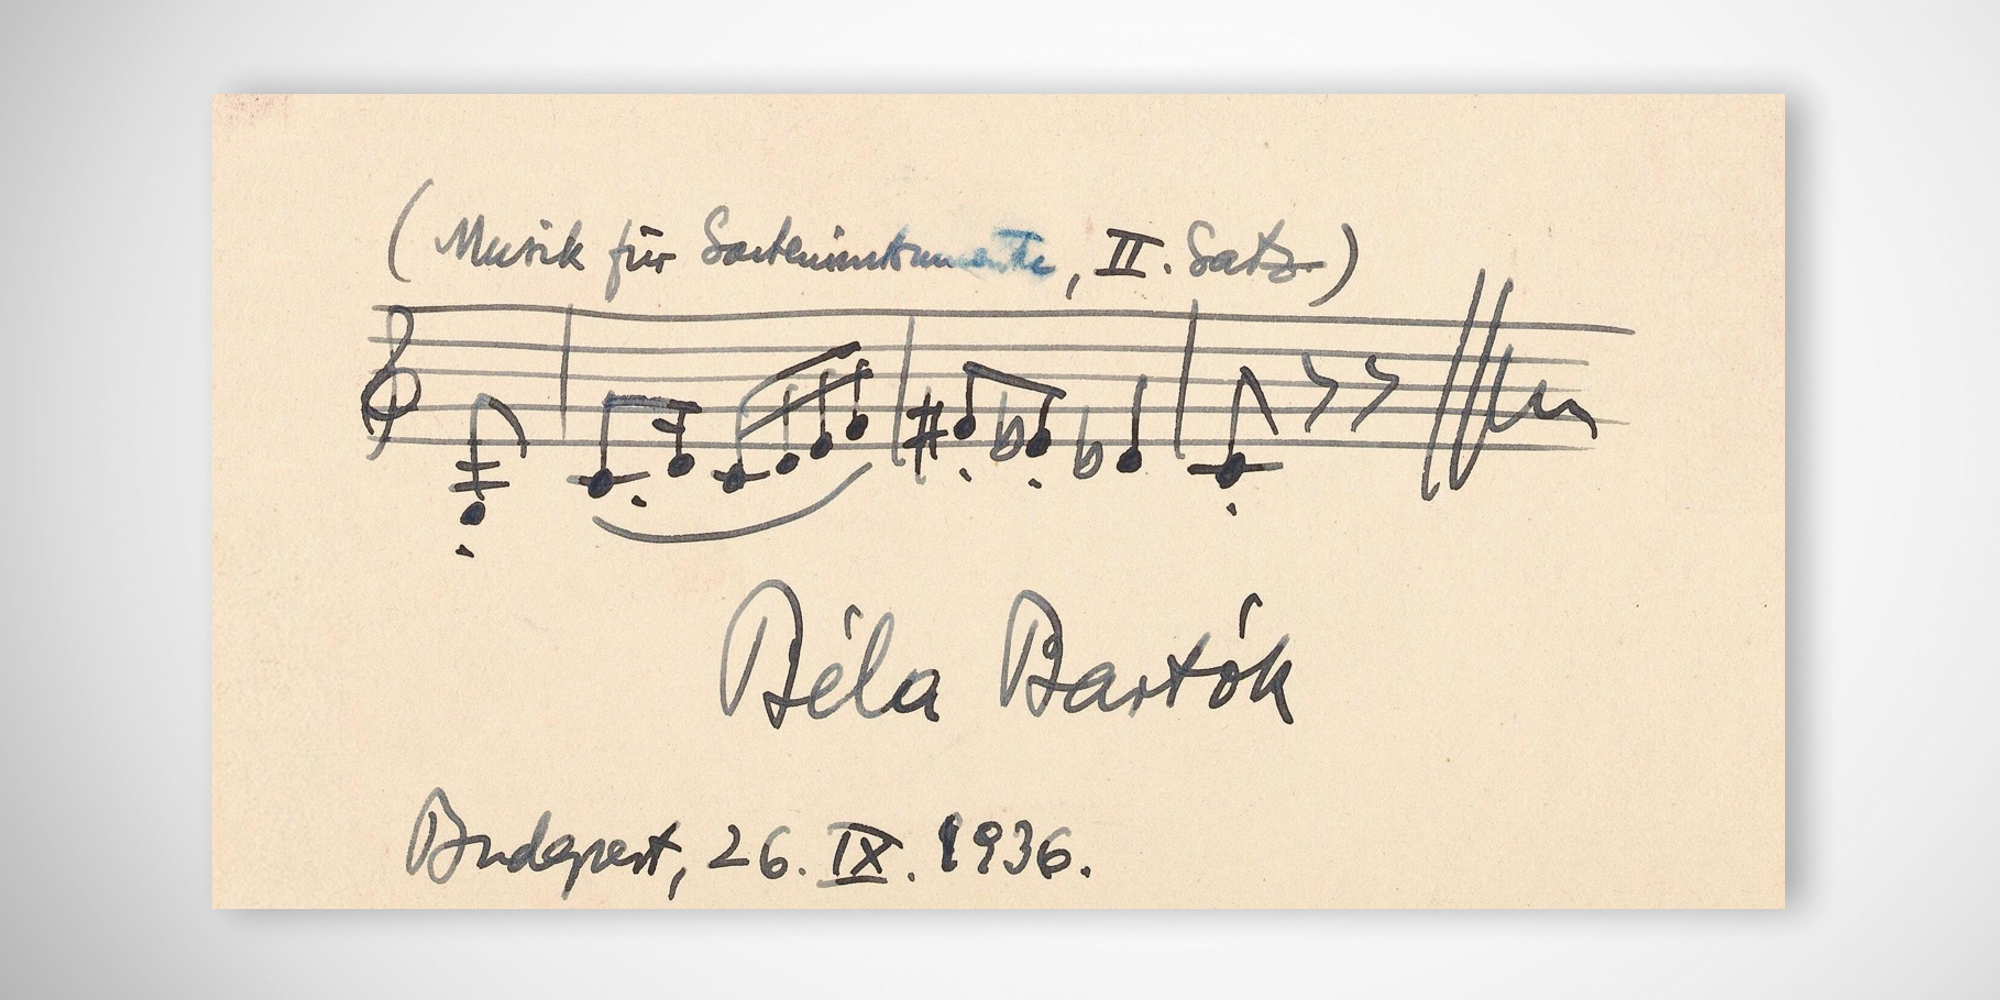 (Musik für Saiteninstrumente, II. Satz)
Béla Bartók
Budapest, 26. IX. 1936.